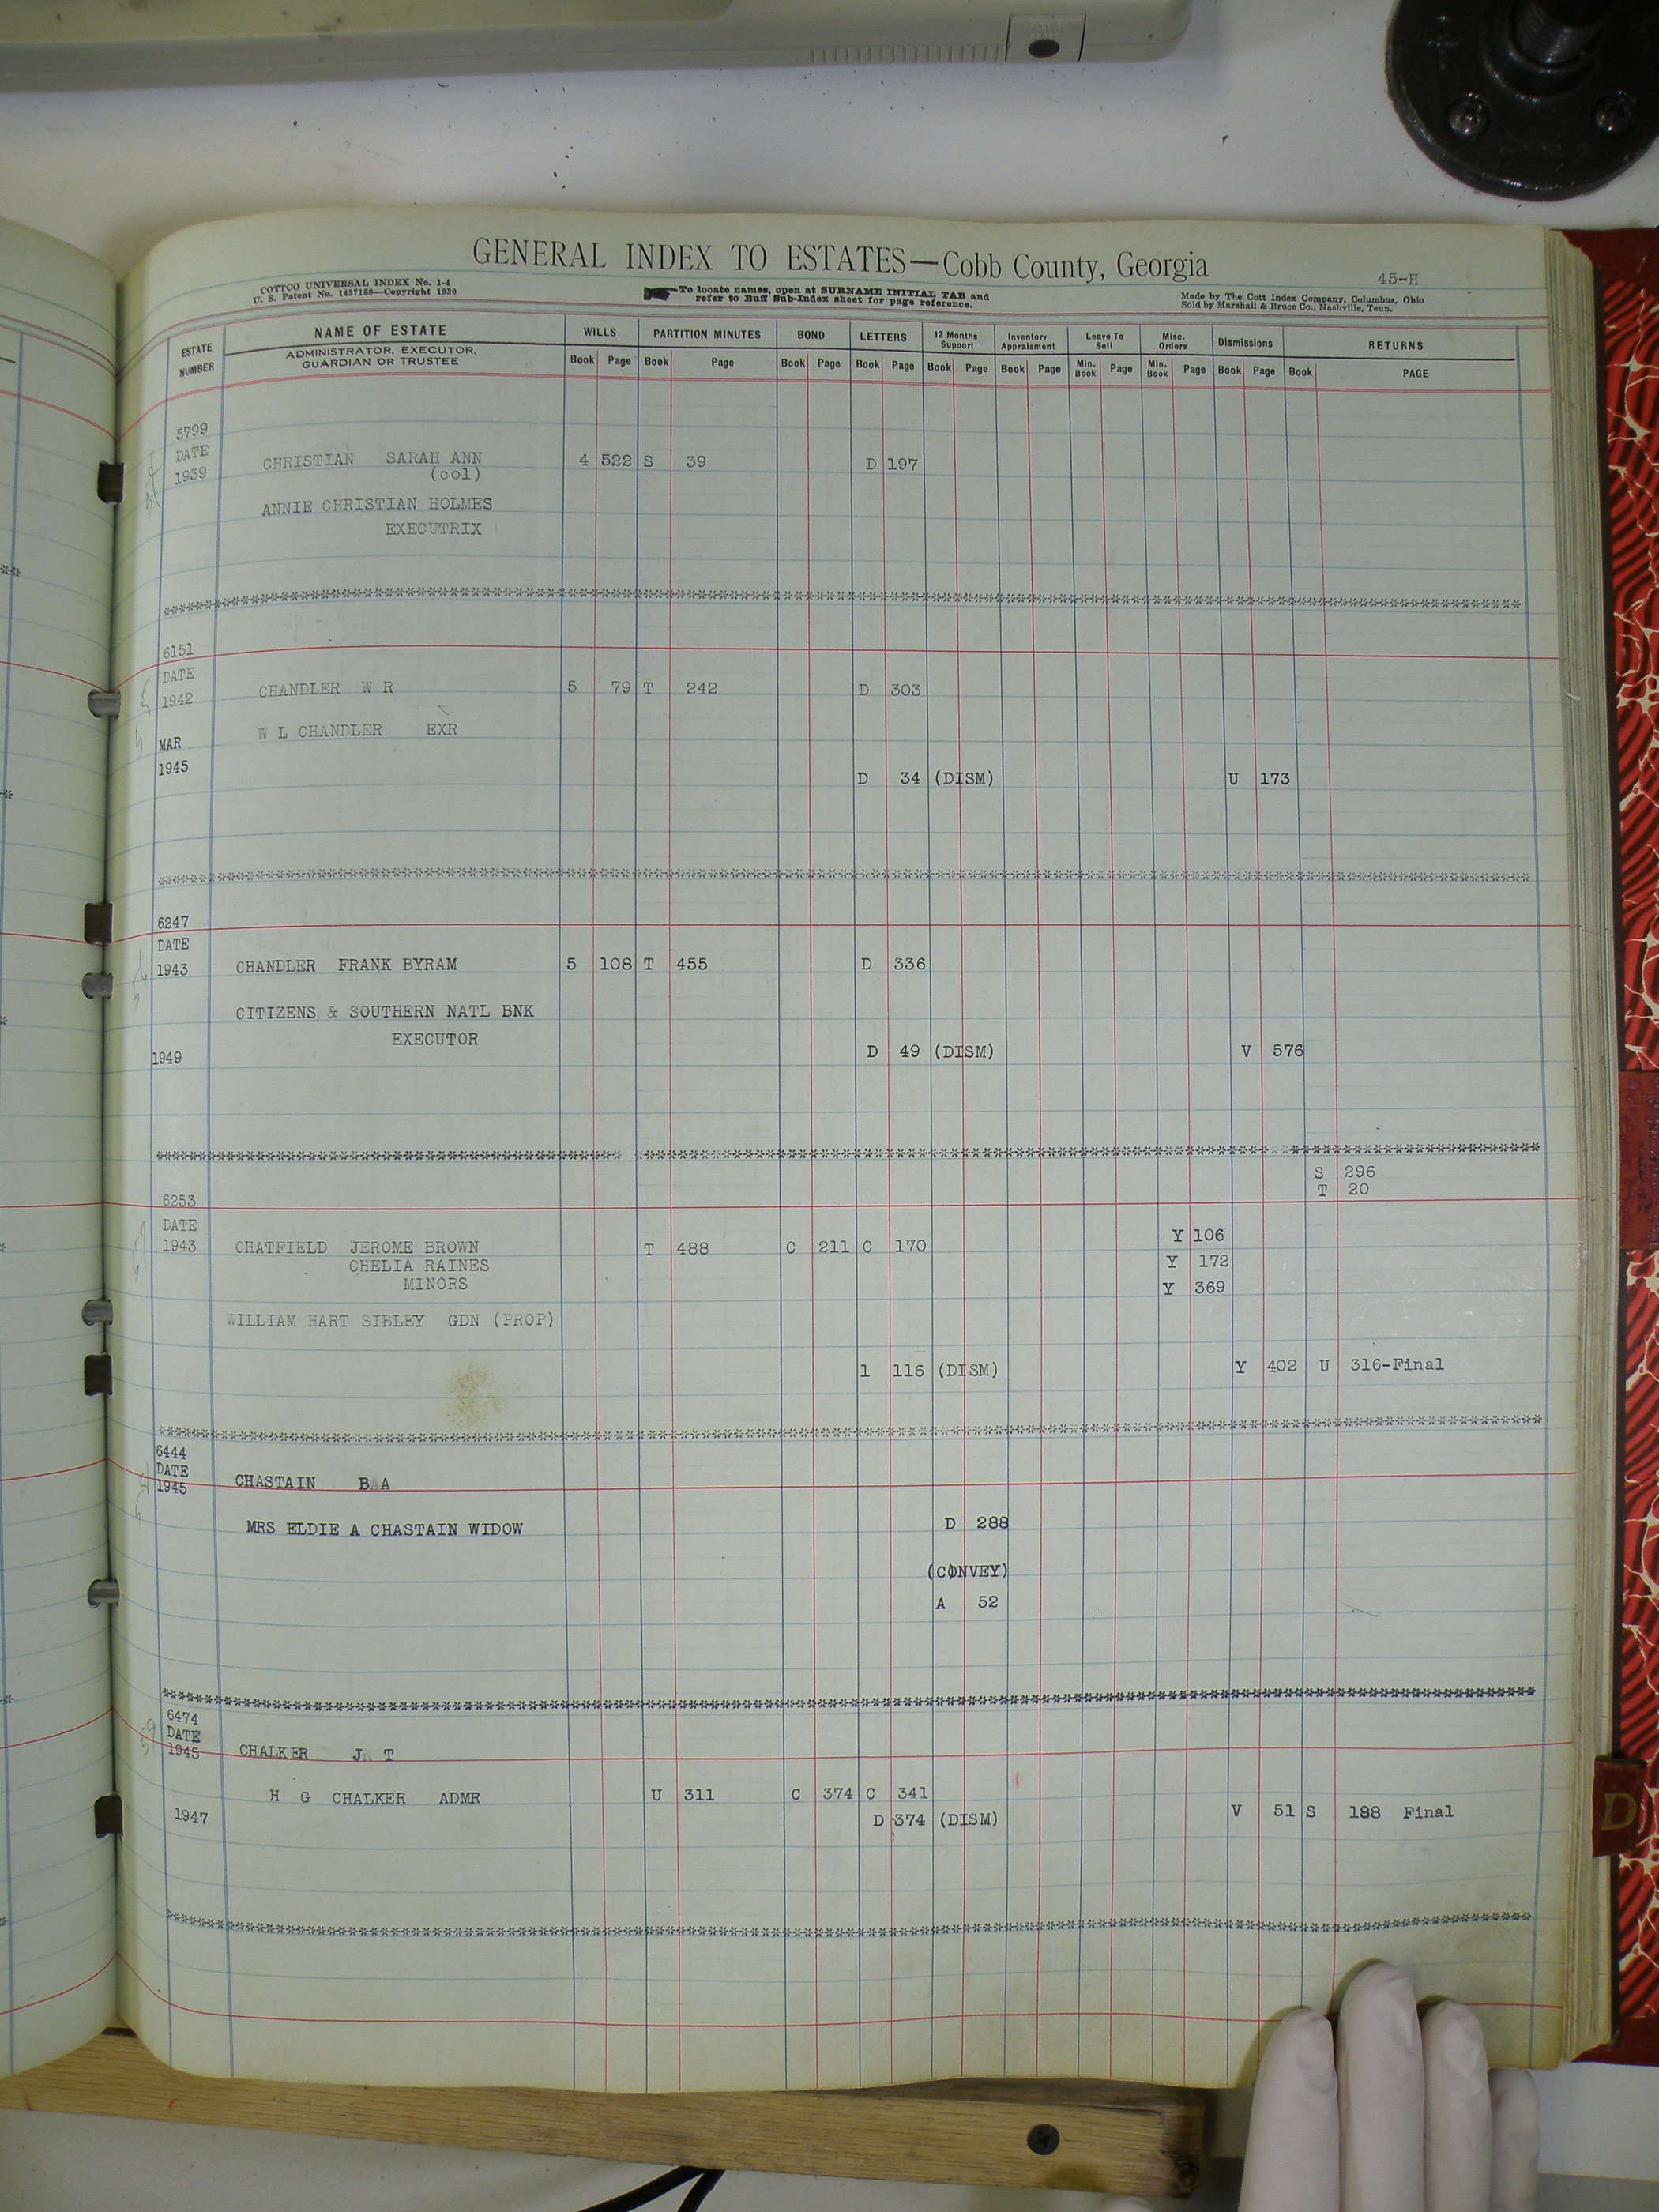 GENERAL INDEX TO ESTATES—Cobb County, Georgia
45-H
COTTCO UNIVERSAL INDEX No. 1-4
U. S. Patent No. 1437168—Copyright 1930
To locate names, open at SURNAME INITIAL TAB and
refer to Buff Sub-Index sheet for page reference.
Made by The Cott Index Company, Columbus, Ohio
Sold by Marshall & Bruce Co., Nashville, Tenn.
ESTATE NUMBER
NAME OF ESTATE
ADMINISTRATOR, EXECUTOR,
GUARDIAN OR TRUSTEE
WILLS PARTITION MINUTES BOND LETTERS 12 Months Support Inventory Appraisment Leave To Sell Misc. Orders Dismissions RETURNS
Book Page Book Page Book Page Book Page Book Page Book Page Min. Book Page Min. Book Page Book Page Book PAGE
5799
DATE
1939 CHRISTIAN SARAH ANN 4 522 S 39 D 197
(col)
ANNIE CHRISTIAN HOLMES
EXECUTRIX
6151
DATE
1942 CHANDLER W R 5 79 T 242 D 303
W L CHANDLER EXR
MAR
1945 D 34 (DISM) U 173
6247
DATE
1943 CHANDLER FRANK BYRAM 5 108 T 455 D 336
CITIZENS & SOUTHERN NATL BNK
EXECUTOR
1949 D 49 (DISM) V 576
S 296
T 20
6253
DATE
Y 106
1943 CHATFIELD JEROME BROWN T 488 C 211 C 170
CHELIA RAINES Y 172
MINORS Y 369
WILLIAM HART SIBLEY GDN (PROP)
1 116 (DISM) Y 402 U 316-Final
6444
DATE
1945 CHASTAIN B A
MRS ELDIE A CHASTAIN WIDOW D 288
(CONVEY)
A 52
6474
DATE
1945 CHALKER J T
H G CHALKER ADMR U 311 C 374 C 341
1947 D 374 (DISM) V 51 S 188 Final
D